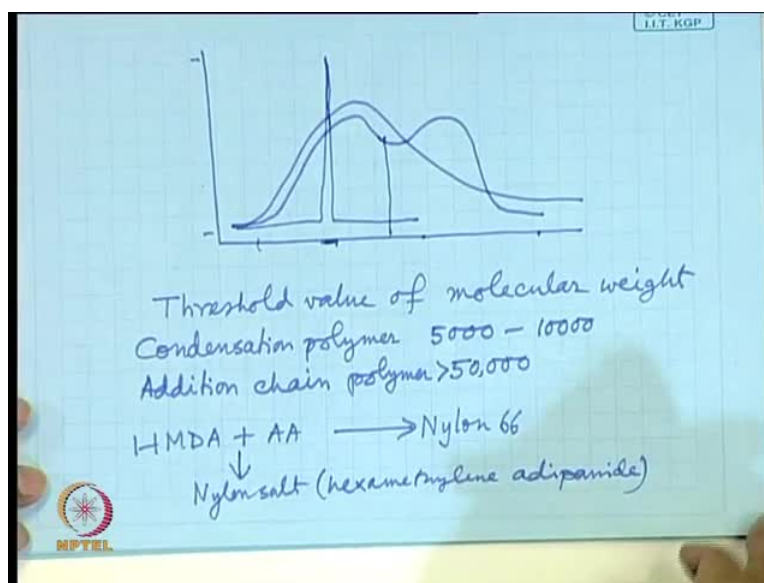 © CET
I.I.T. KGP
Threshold value of molecular weight
Condensation polymer 5000 - 10000
Addition chain polymer >50,000
HMDA + AA ⟶ Nylon 66
↓
Nylon salt (hexamethylene adipamide)
NPTEL